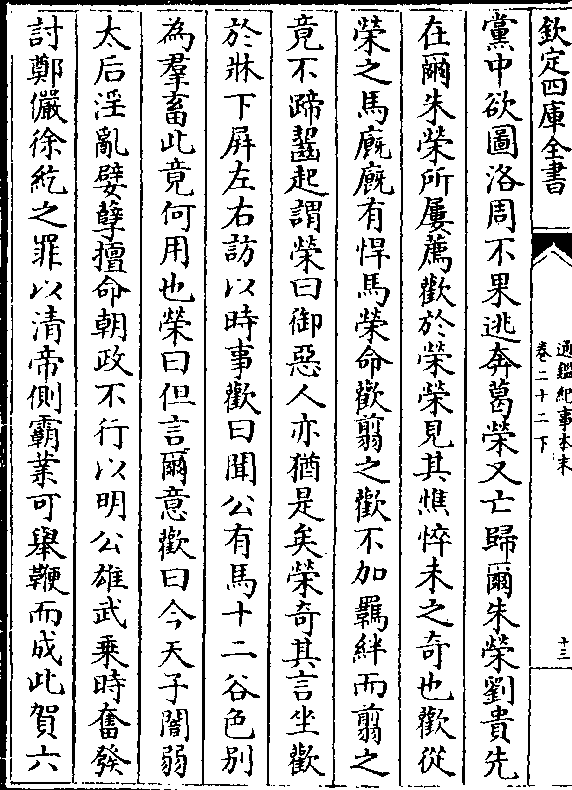 欽定四庫全書
通鑑紀事本末
卷二十二下
十三
黨中欲圖洛周不果逃奔葛榮又亡歸爾朱榮劉貴先
在爾朱榮所屢薦歡於榮榮見其憔悴未之奇也歡從
榮之馬廐廐有悍馬榮命歡翦之歡不加羈絆而翦之
竟不蹄齧起謂榮曰御惡人亦猶是矣榮奇其言坐歡
於牀下屏左右訪以時事歡曰聞公有馬十二谷色别
為羣畜此竟何用也榮曰但言爾意歡曰今天子闇弱
太后淫亂嬖孽擅命朝政不行以明公雄武乗時奮發
討鄭儼徐紇之罪以清帝側霸業可舉鞭而成此賀六